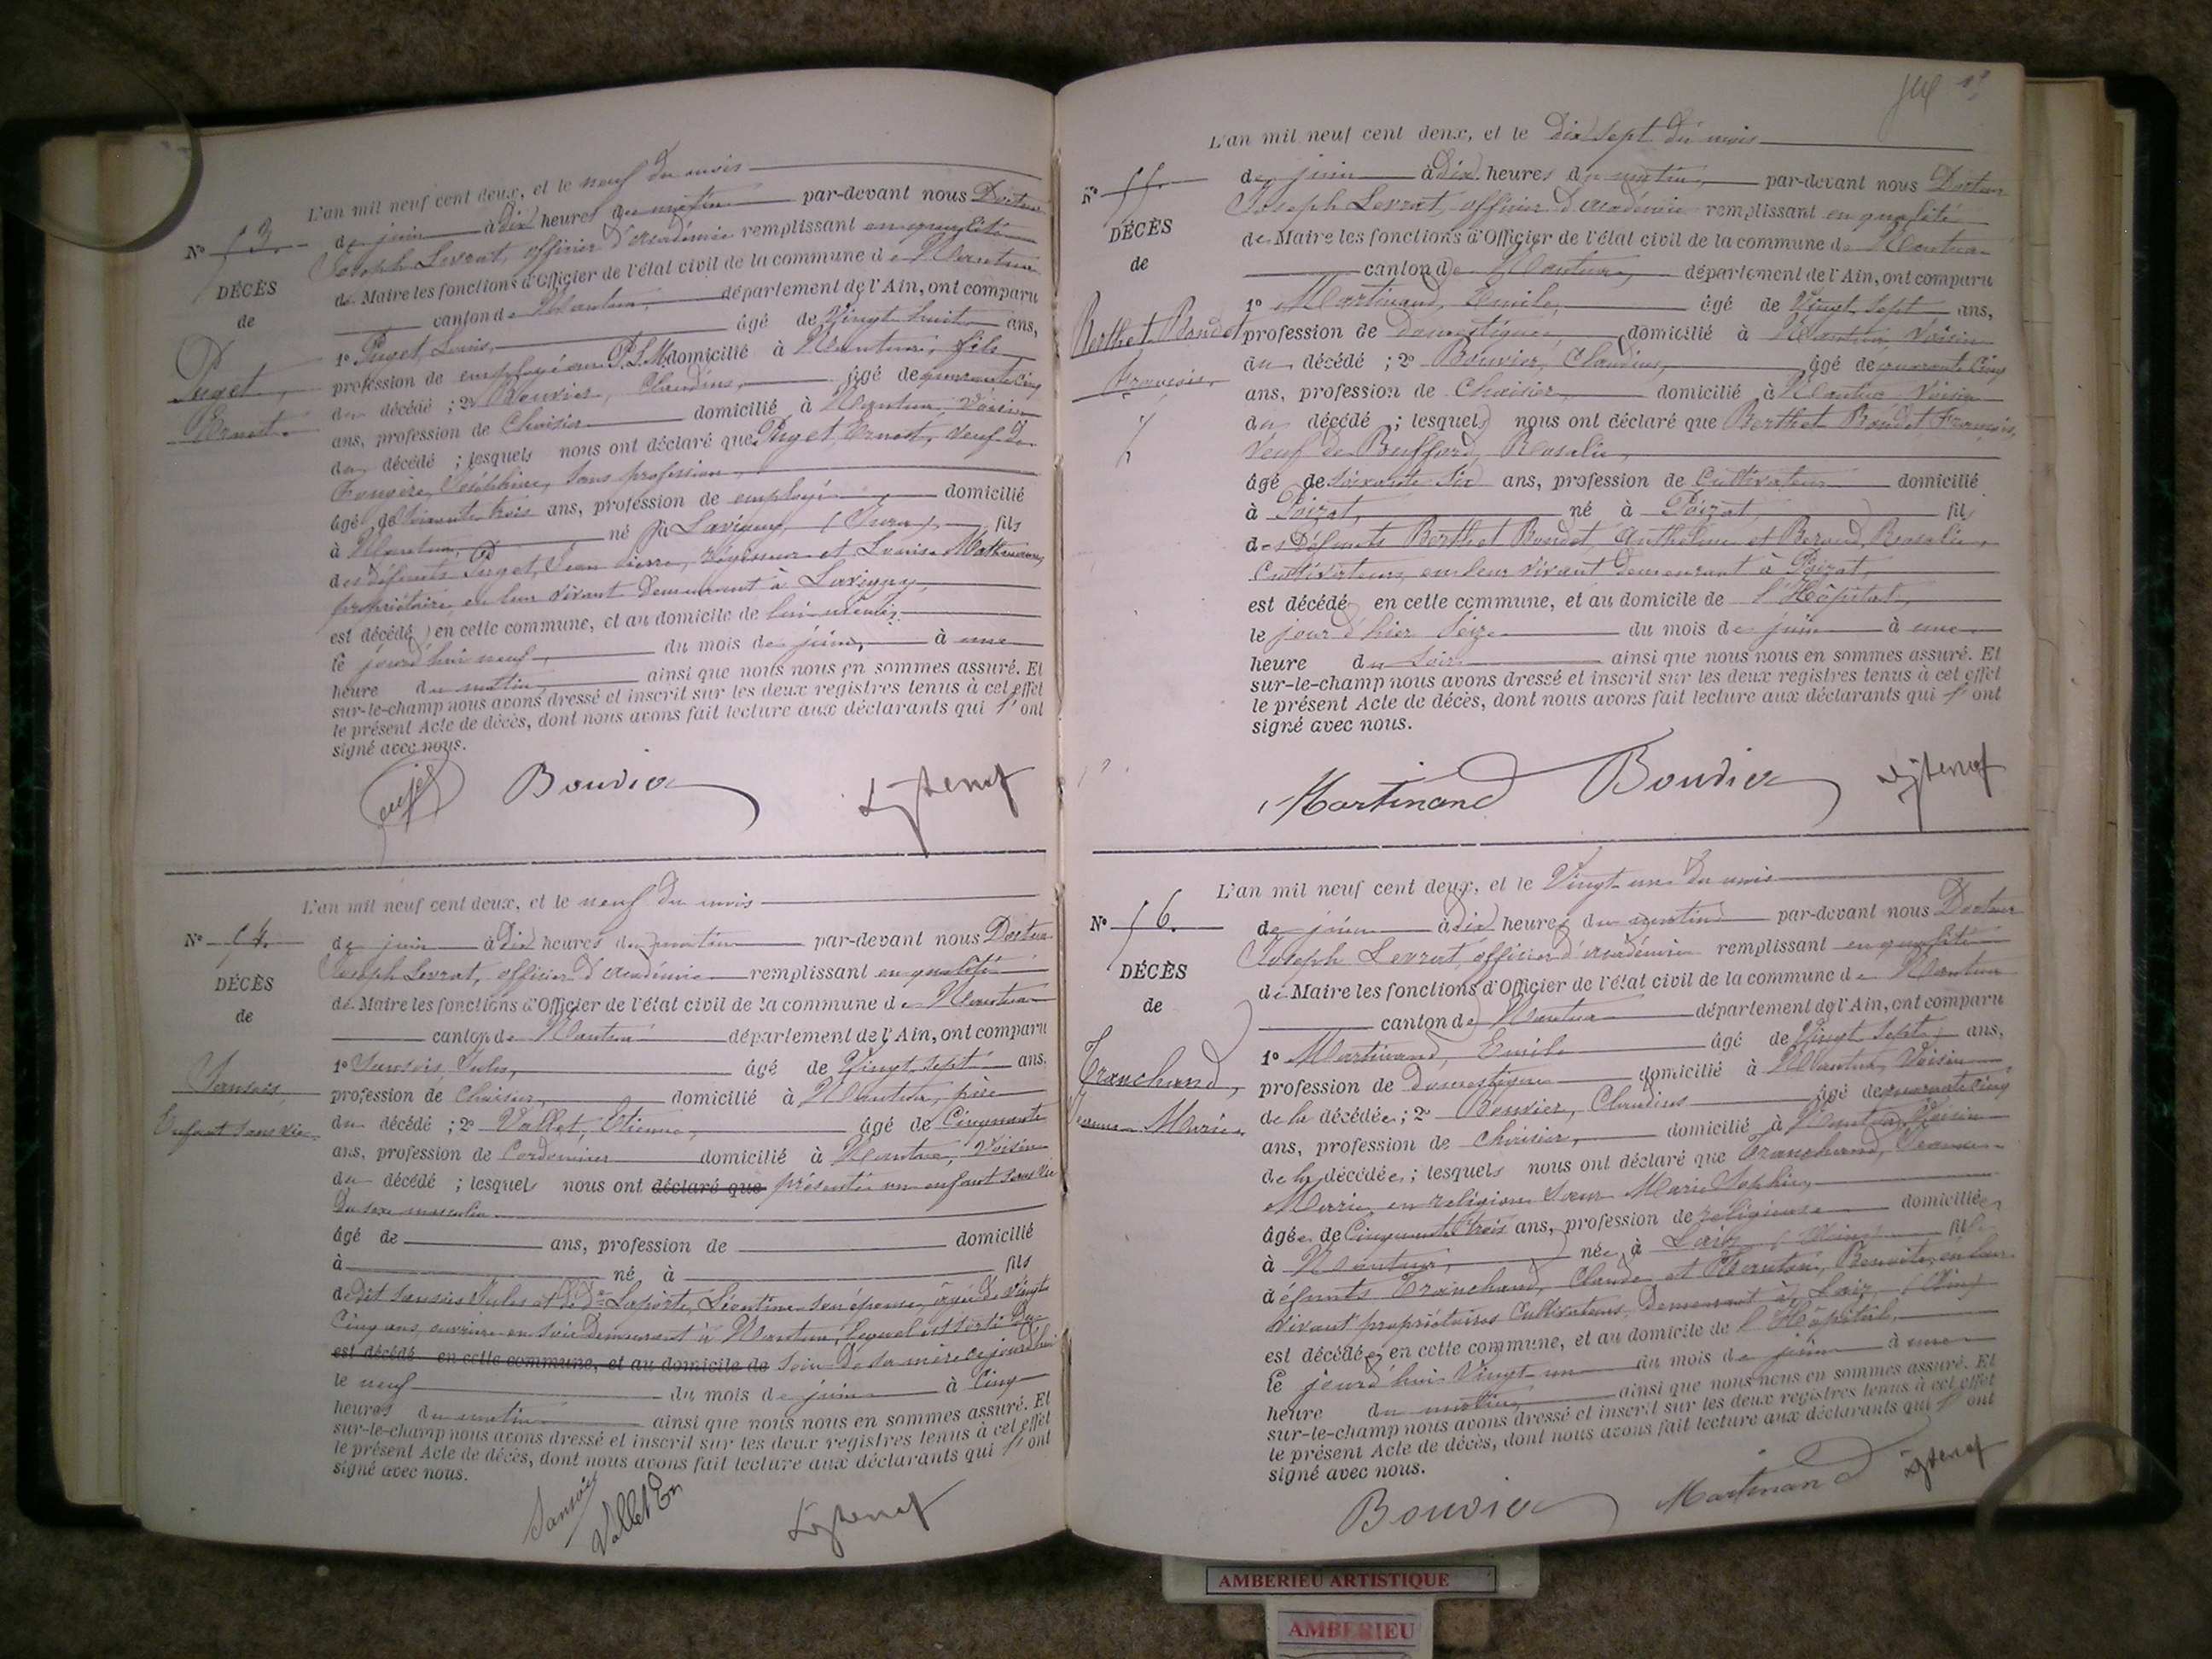 L'an mil neuf cent deux, et le neuf du mois
N° 53
de juin à dix heures du matin par-devant nous Docteur
Joseph Levrat, officier d'académie remplissant en qualité
DÉCÈS
de Maire les fonctions d'Officier de l'état civil de la commune de Nantua
de
canton de Nantua, département de l'Ain, ont comparu
1° Puget, Louis, âgé de Vingt huit ans,
Puget
profession de employé au P.L.M. domicilié à Nantua, fils
Ernest.
du décédé ; 2° Bouvier, Claudius, âgé de quarante cinq
ans, profession de Chaisier domicilié à Nantua, Voisin
du décédé ; lesquels nous ont déclaré que Puget, Ernest, veuf de
Joséphine, Sans profession,
âgé de soixante trois ans, profession de employé domicilié
à Nantua, né à Lavigny, (Jura), fils
des défunts Puget, Jean Pierre, et Louise
propriétaire en leur vivant Demeurant à Lavigny,
est décédé en cette commune, et au domicile de lui-même,
le jourd'hui neuf du mois de juin, à une
heure du matin, ainsi que nous nous en sommes assuré. Et
sur-le-champ nous avons dressé et inscrit sur les deux registres tenus à cet effet
le présent Acte de décès, dont nous avons fait lecture aux déclarants qui l'ont
signé avec nous.
Puget Bouvier
L'an mil neuf cent deux, et le neuf du mois
N° 54.
de juin à dix heures du matin par-devant nous Docteur
Joseph Levrat, officier d'académie remplissant en qualité
DÉCÈS
de Maire les fonctions d'Officier de l'état civil de la commune de Nantua
de
canton de Nantua département de l'Ain, ont comparu
1° Sansois, Jules, âgé de Vingt sept ans,
Sansois,
profession de Chaisier, domicilié à Nantua, père
Enfant sans vie.
du décédé ; 2° Vallet, Etienne, âgé de Cinquante
ans, profession de Cordonnier domicilié à Nantua, Voisin
du décédé ; lesquels nous ont déclaré que présenté un enfant sans vie
Du sexe masculin
âgé de ans, profession de domicilié
à né à fils
de dit Sansois Jules et de Laporte, Léontine son épouse, âgée de vingt
Cinq ans, ouvrière en soie demeurant à Nantua, lequel est sorti du
est décédé en cette commune, et au domicile de sein de sa mère ce jourd'hui
le neuf du mois de juin à Cinq
heures du matin ainsi que nous nous en sommes assuré. Et
sur-le-champ nous avons dressé et inscrit sur les deux registres tenus à cet effet
le présent Acte de décès, dont nous avons fait lecture aux déclarants qui l'ont
signé avec nous.
Sansois Vallet En
L'an mil neuf cent deux, et le Dix sept du mois
N° 55.
de juin à Dix heures du matin, par-devant nous Docteur
Joseph Levrat, officier d'académie remplissant en qualité
DÉCÈS
de Maire les fonctions d'Officier de l'état civil de la commune de Nantua
de
canton de Nantua, département de l'Ain, ont comparu
1° Martinand, Emile, âgé de Vingt sept ans,
Berthet Bondet
profession de Domestique domicilié à Nantua, Voisin
François,
du décédé ; 2° Bouvier, Claudius, âgé de quarante cinq
ans, profession de Chaisier, domicilié à Nantua Voisin
du décédé ; lesquels nous ont déclaré que Berthet Bondet François,
Veuf de Buffard, Rosalie,
âgé de soixante six ans, profession de Cultivateur domicilié
à Poizat, né à Poizat, fils
des Défunts Berthet Bondet, Anthelme et Beroud, Rosalie,
Cultivateurs, en leur vivant demeurant à Poizat,
est décédé en cette commune, et au domicile de l'Hôpital,
le jour d'hier Seize du mois de juin à une
heure du soir ainsi que nous nous en sommes assuré. Et
sur-le-champ nous avons dressé et inscrit sur les deux registres tenus à cet effet
le présent Acte de décès, dont nous avons fait lecture aux déclarants qui l'ont
signé avec nous.
Martinand Bouvier
L'an mil neuf cent deux, et le Vingt un du mois
N° 56.
de juin à dix heures du matin par-devant nous Docteur
Joseph Levrat, officier d'académie remplissant en qualité
DÉCÈS
de Maire les fonctions d'Officier de l'état civil de la commune de Nantua
de
canton de Nantua département de l'Ain, ont comparu
1° Martinand, Emile âgé de Vingt sept ans,
Tranchand,
profession de Domestique domicilié à Nantua, Voisin
Jeanne Marie.
de la décédée ; 2° Bouvier, Claudius âgé de quarante cinq
ans, profession de Chaisier, domicilié à Nantua Voisin
de la décédée ; lesquels nous ont déclaré que Tranchand, Jeanne
Marie, en religion Soeur Marie Sophie,
âgée de Cinquante trois ans, profession de religieuse domiciliée
à Nantua, née à Lair, (Ain) fille
défunts Tranchand, Claude et Benoite, en leur
vivant propriétaires Cultivateurs, Demeurant à Lair, (Ain)
est décédée en cette commune, et au domicile de l'Hôpital,
le jourd'hui Vingt un du mois de juin à une
heure du matin, ainsi que nous nous en sommes assuré. Et
sur-le-champ nous avons dressé et inscrit sur les deux registres tenus à cet effet
le présent Acte de décès, dont nous avons fait lecture aux déclarants qui l'ont
signé avec nous.
Bouvier Martinand
AMBERIEU ARTISTIQUE
AMBERIEU